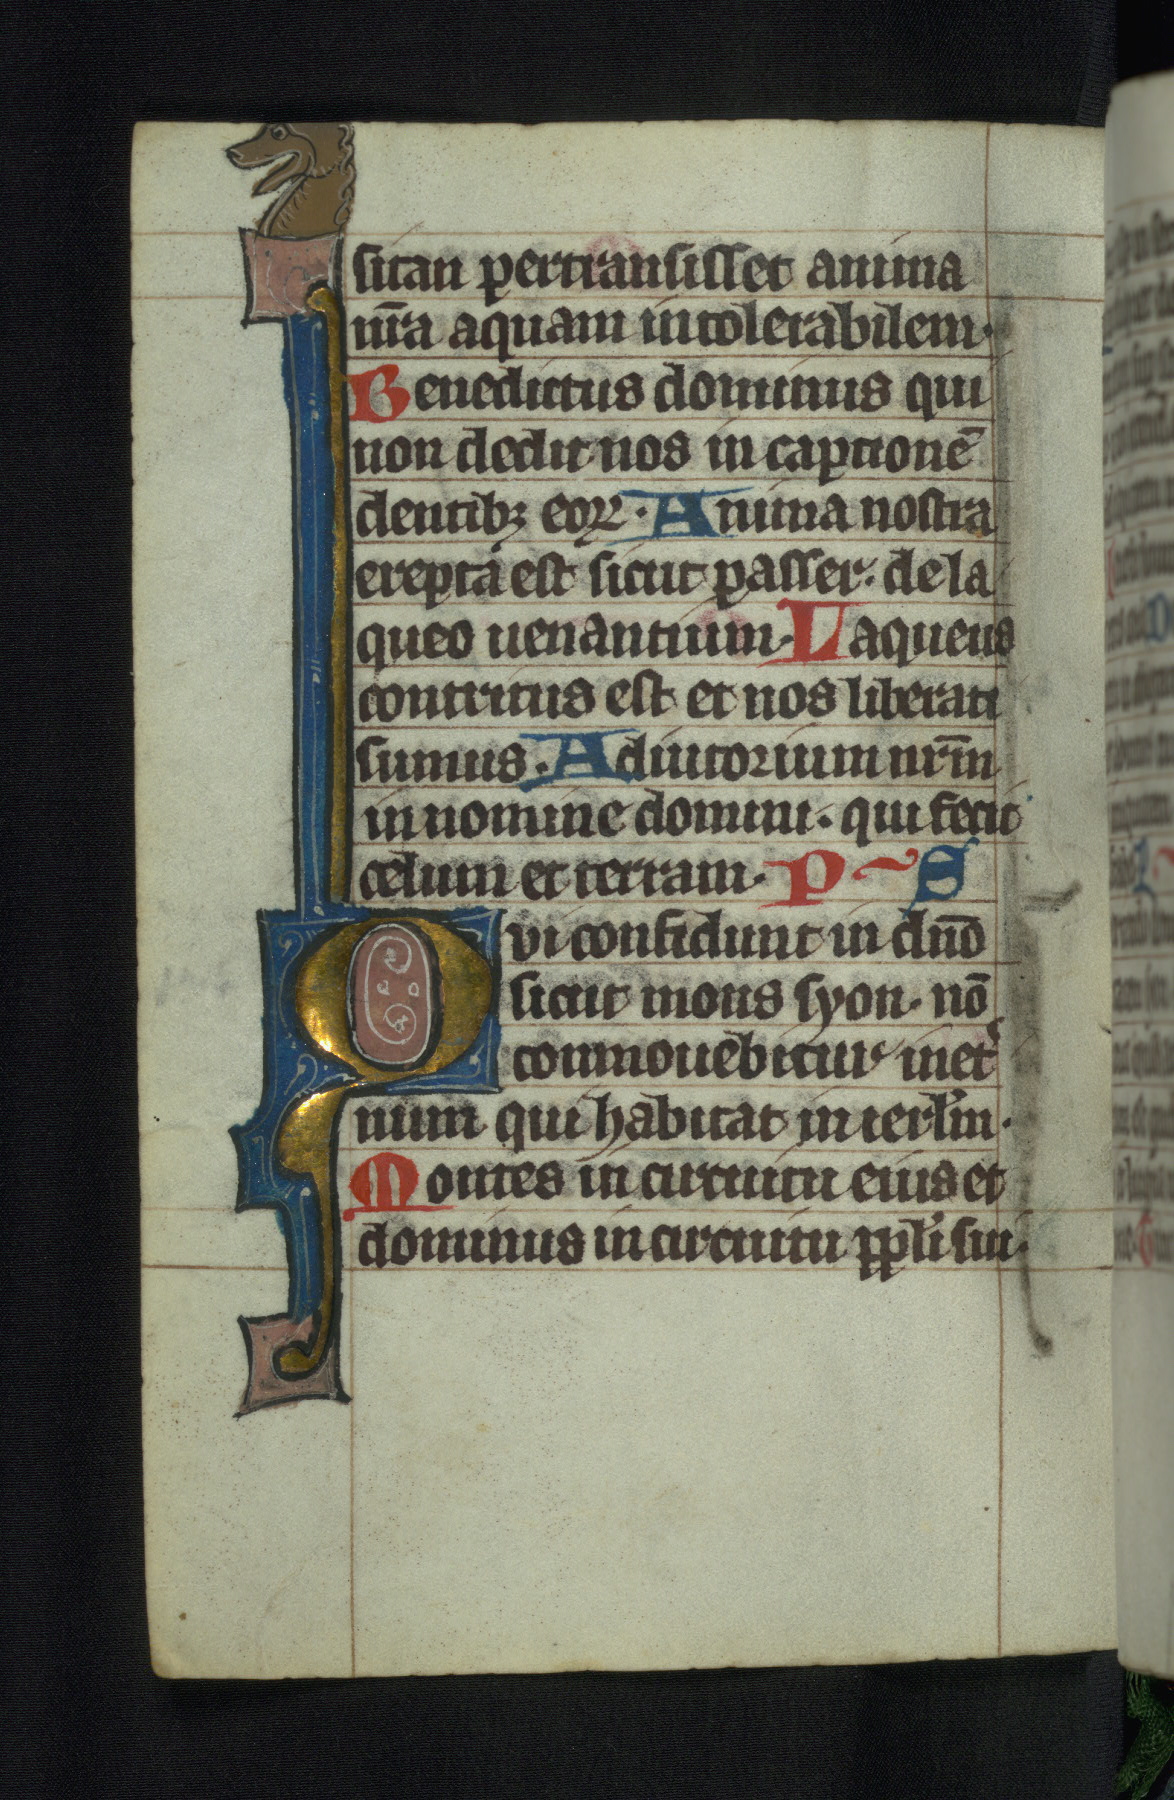 sitan pertransisset anima
nr̄a aquam intolerabilem·
Benedictus dominus qui
non dedit nos in captionē
dentibꝫ eoꝝ· Anima nostra
erepta est sicut passer· de la
queo uenantium· Laqueus
contritus est et nos liberati
sumus· Adiutorium nr̄m
in nomine domini· qui fecit
celum et terram· P~S
Qvi confidunt in dn̄o
sicut mons syon· nō
conmouebitur in et̾
num qui habitat in ierl̄m·
Montes in circuitu eius et
dominus in circuitu ppl̄i sui·